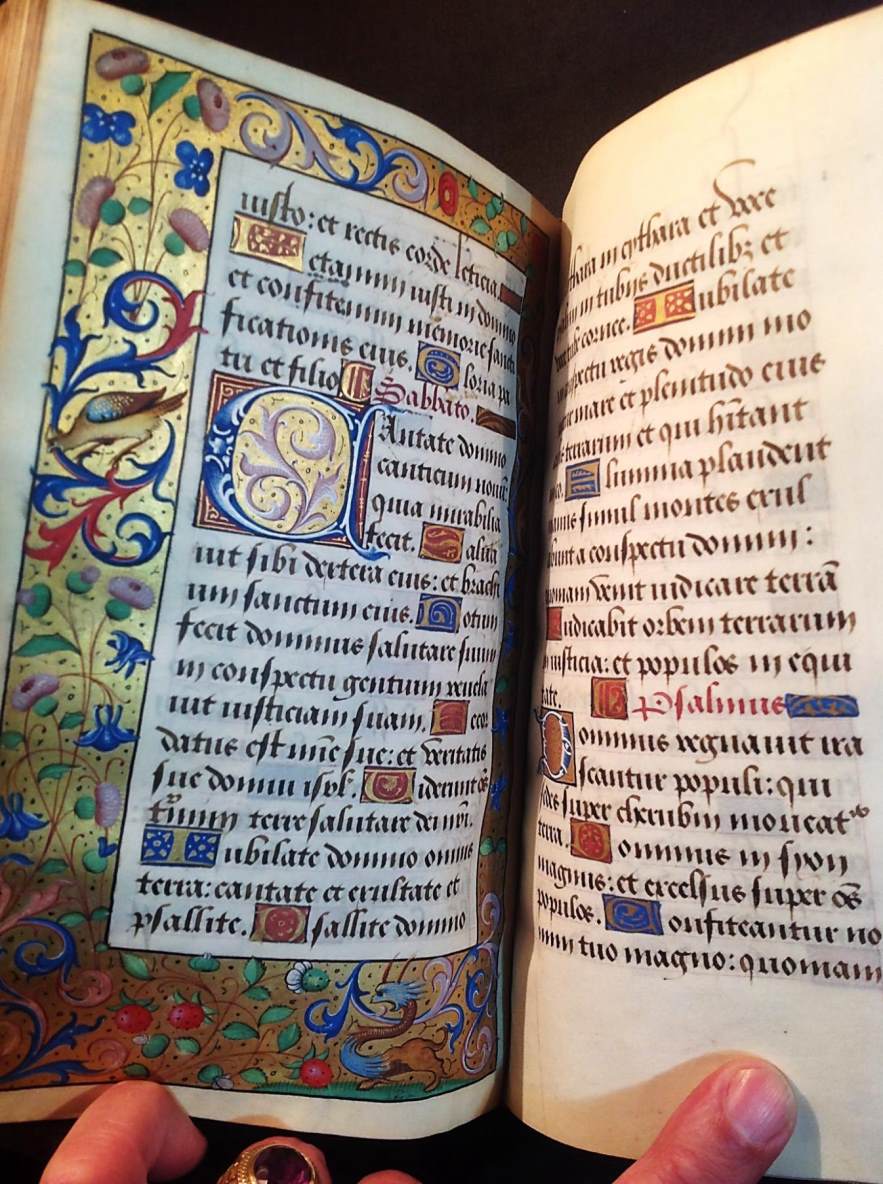 iusto: et rectis corde leticia.
etamini iusti in domino
et confitemini memorie sancti
ficationis eius. Gloria pa
tri et filio Sabbato.
CAntate domino
canticum nouū
quia mirabilia
fecit. Salua
uit sibi dextera eius: et brachi
um sanctum eius. Notum
fecit dominus salutare suum
in conspectu gentium reuela
uit iusticiam suam. Recor
datus est mīe sue: et veritatis
sue domui isrl. Viderunt oēs
tīmini terre salutare dei nr̄i.
Iubilate domino omnis
terra: cantate et exultate et
psallite. Psallite domino
cythara in cythara et voce
in tubis ductilibꝫ et
cornee. Iubilate
regis domini mo
mare et plenitudo eius
terrarum et qui hītant
Flumina plaudent
simul montes exul
a conspectu domini:
quoniam venit iudicare terrā
Iudicabit orbem terrarum
iusticia: et populos in equi
tate. Psalmus
Dominus regnauit ira
scantur populi: qui
sedes super cherubin moueatᵘʳ
terra. Dominus in syon
magnus: et excelsus super oēs
populos. Confiteantur no
mini tuo magno: quoniam